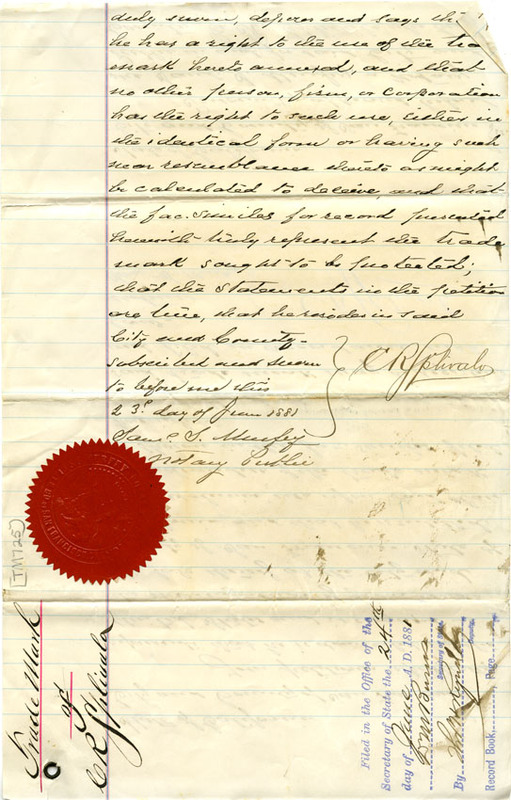 duly sworn, deposes and says that
he has a right to the use of the tra
mark hereto annexed, and that
no other person, firm, or corporation
has the right to such use, either in
the identical form or having such
near resemblance thereto as might
be calculated to deceive, and that
the fac. similes for record presented
herewith truly represent the trade
mark sought to be protected;
that the statements in the petition
are true, that he resides in said
City and County.
subscribed and sworn
to before me this
23d day of June 1881
Saml. S. Murfey
Notary Public
C R Splivalo
TM725
Trade Mark
of
C R Splivalo
Filed in the Office of the
Secretary of State the 24th
day of June A. D. 1881
Secretary of State
By
Deputy
Record Book, Page